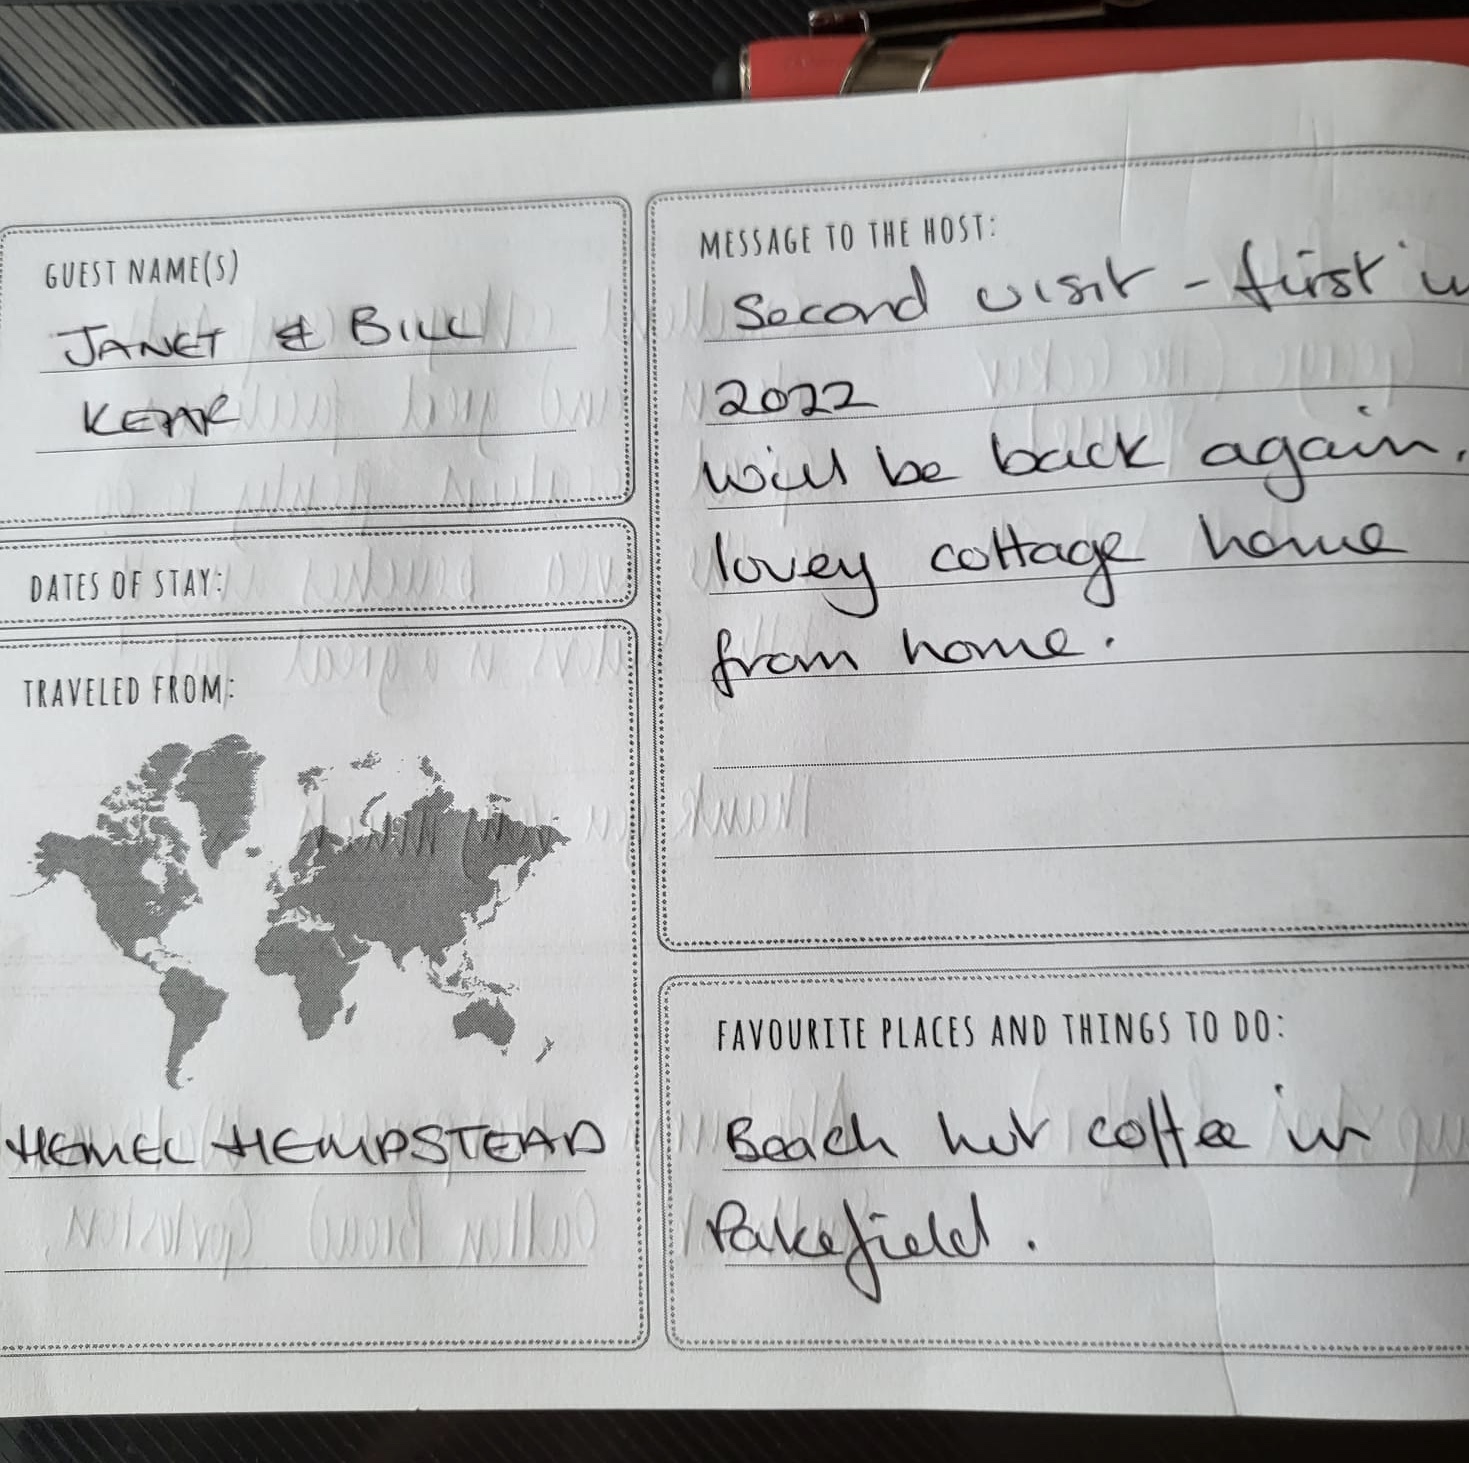 GUEST NAME(S)
JANET & BILL
KEAR
DATES OF STAY:
TRAVELED FROM:
HEMEL HEMPSTEAD
MESSAGE TO THE HOST:
Second visit - first in
2022
will be back again.
lovey cottage home
from home.
FAVOURITE PLACES AND THINGS TO DO:
Beach hut coffee in
Pakefield.